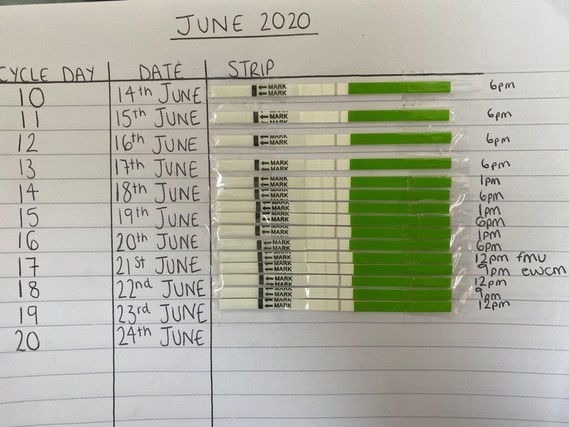 JUNE 2020
CYCLE DAY DATE STRIP
10 14th JUNE ←MARK ←MARK 6pm
11 15th JUNE ←MARK ←MARK 6pm
12 16th JUNE ←MARK ←MARK 6pm
13 17th JUNE ←MARK ←MARK 6pm
14 18th JUNE ←MARK ←MARK 1pm
←MARK 6pm
15 19th JUNE ←MARK 1pm
←MARK 6pm
16 20th JUNE ←MARK 1pm
←MARK 6pm
17 21st JUNE ←MARK 12pm fmu
←MARK 9pm ewcm
18 22nd JUNE ←MARK 12pm
←MARK 9pm
19 23rd JUNE ←MARK 12pm
20 24th JUNE